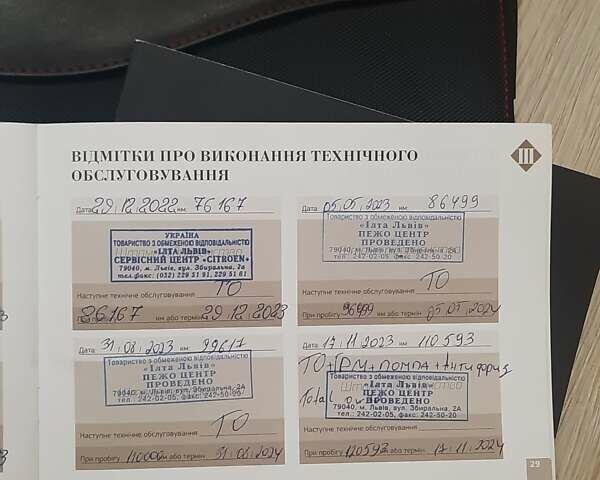 ВІДМІТКИ ПРО ВИКОНАННЯ ТЕХНІЧНОГО
ОБСЛУГОВУВАННЯ
III
Дата 29.12.2022 км 76167
УКРАЇНА
ТОВАРИСТВО З ОБМЕЖЕНОЮ ВІДПОВІДАЛЬНІСТЮ
«ІЛТА ЛЬВІВ»
СЕРВІСНИЙ ЦЕНТР «CITROEN»
79040, м. Львів, вул. Збиральна, 2а
тел.факс: (032) 229 51 91, 229 51 61
ТО
Наступне технічне обслуговування
При пробігу 86167 км або термін 29.12.2023
Дата 05.05.2023 км 86499
Товариство з обмеженою відповідальністю
«Ілта Львів»
ПЕЖО ЦЕНТР
ПРОВЕДЕНО
79040, м. Львів, вул. Збиральна, 2А
тел. 242-02-05, факс 242-50-20
ТО
Наступне технічне обслуговування
При пробігу 96499 км або термін 05.05.2024
Дата 31.08.2023 км 99617
Товариство з обмеженою відповідальністю
«Ілта Львів»
ПЕЖО ЦЕНТР
ПРОВЕДЕНО
79040, м. Львів, вул. Збиральна, 2А
тел. 242-02-05, факс 242-50-20
ТО
Наступне технічне обслуговування
При пробігу км або термін 31.08.2024
Дата 17.11.2023 км 110593
ТО+РМ+помпа+Антифриз
Total
Товариство з обмеженою відповідальністю
«Ілта Львів»
ПЕЖО ЦЕНТР
ПРОВЕДЕНО
79040, м. Львів, вул. Збиральна, 2А
тел. 242-02-05, факс 242-50-20
Наступне технічне обслуговування
При пробігу 120593 км або термін 17.11.2024
29